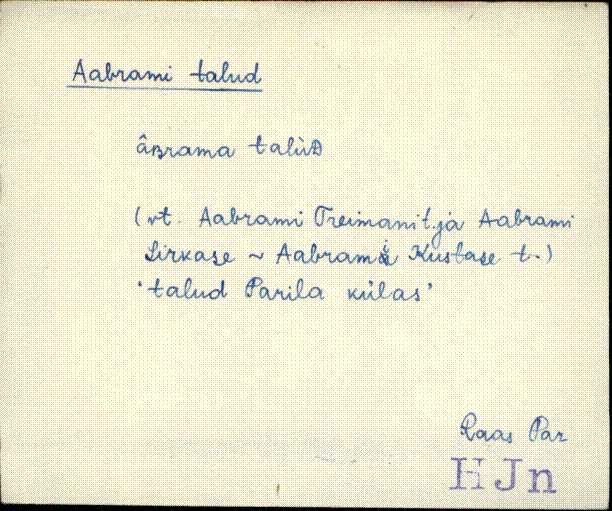 Aabrami talud
âʙrama talùᴅ
(vt. Aabrami Treimani t. ja Aabrami
Sirkase ~ Aabrami Kustase t.)
'talud Parila külas'
Raas Par
HJn